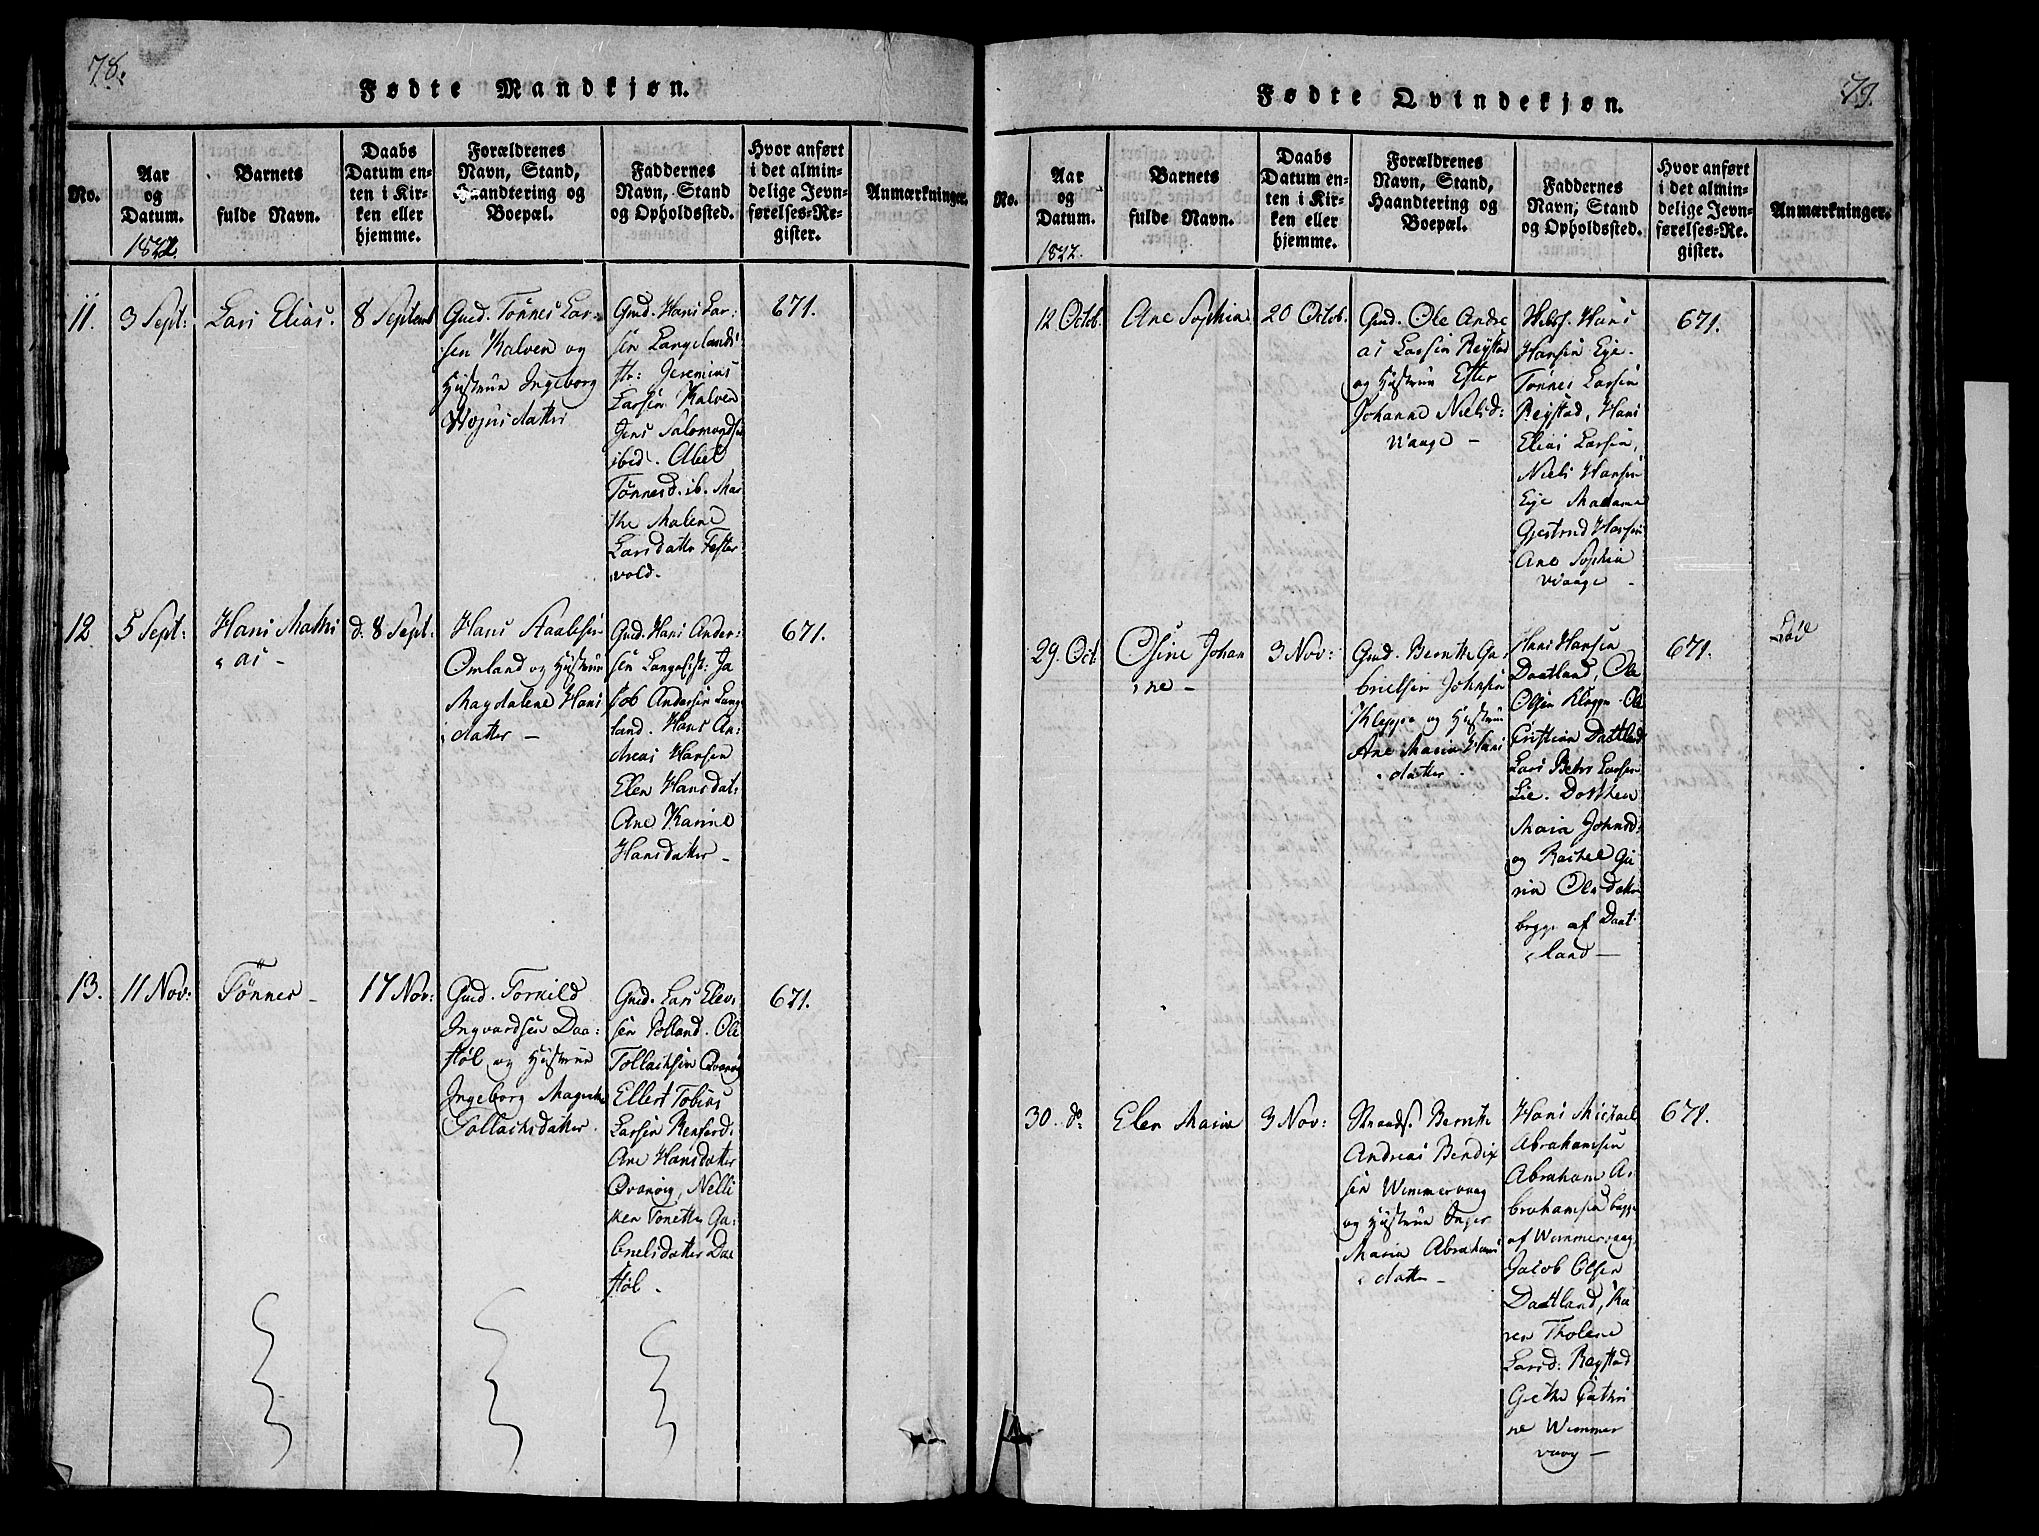 78.
Fødte Mandkjøn.
No.
Aar
og
Datum.
1822.
Barnets
fulde Navn.
Daabs
Datum en-
ten i Kir-
ken eller
hjemme.
Forældrenes
Navn, Stand,
Haandtering og
Boepæl.
Faddernes
Navn, Stand
og Opholdssted.
Hvor anført
i det almin-
delige Jevn-
førelses-Re-
gister.
Anmærkninger.
11.
3 Sept:
Lars Elias.
8 Septemb
Gmd. Tönnes Lar-
sen Kalven og
Hustrue Ingeborg
datter
Gmd. Hans Lar:
sen Langelands
str: Jeremias
Larsen Kalven
Jens Salomonds
ibid. Abel
Tönnesd. ib. Mar
the Malene
Larsdattr Fester
vold.
671.
12
5 Sept:
Hans Mathi
as -
d. 8 Sept:
Hans Staalesen
Omland og Hustrue
Magdalene Hans
datter -
Gmd. Hans Ander:
sen Langelst: Ja
kob Andersen Lang
land. Hans An:
dreas Hansen
Elen Hansdat:
Ane Karine
Hansdatter -
671.
13.
11 Nov:
Tönnes -
17 Nov:
Gmd. Torkild
Ingvardsen Daa:
støl og Hustrue
Ingeborg Magrethe
Tollachsdatter.
Gmd. Lars Elev:
sen Tolland. Ole
Tollachsen Qvanvig
Ellert Tobias
Larsen Renford:
Ane Hansdatter
Qvanvig, Nelli
ken Tonette Ga:
brielsdatter Daa
støl -
671.
79.
Fødte Qvindekjøn.
No.
Aar
og
Datum.
1822.
Barnets
fulde Navn.
Daabs
Datum en-
ten i Kir-
ken eller
hjemme.
Forældrenes
Navn, Stand,
Haandtering og
Boepæl.
Faddernes
Navn, Stand
og Opholdssted.
Hvor anført
i det almin-
delige Jevn-
førelses-Re-
gister.
Anmærkninger.
12 Octob.
Ane Sophia
20 Octob.
Gmd. Ole Andre
as Larsen Reystad
og Hustrue Ester
Johanne Nielsd:
Vaage -
Hans
Hansen Eye.
Tönnes Larsen
Reystad, Hans
Elias Larsen,
Niels Hansen
Eye Madame
Gjertrud Hansen
Ane Sophia
Vaage -
671.
29. Oct
Osine Johan
ne -
3 Nov:
Gmd. Bernth Ga-
brielsen Johnsen
Kleppe og Hustrue
Ane Maria Hans
datter.
Hans Hansen
Daatland, Ole
Olsen Kleppe. Ole
Cristian Daatland
Lars Peter Larsen
Lie. Dorthea
Maria Johnsd:
og Rachel Gu
ria Olesdatter
begge af Daat
land -
671.
Död
30. d:
Elen Maria
3 Nov:
Strands. Bernth
Andreas Bendix
sen Wimmervaag
og Hustrue Inger
Maria Abrahams
datter -
Hans Michael
Abrahamsen
Abraham A:
brahamsen begge
af Wimmervaag
Jacob Olsen
Daatland, Ka
ren Tholene
Larsd: Reystad
Grethe Cathri
ne Wimmer
vaag -
671.